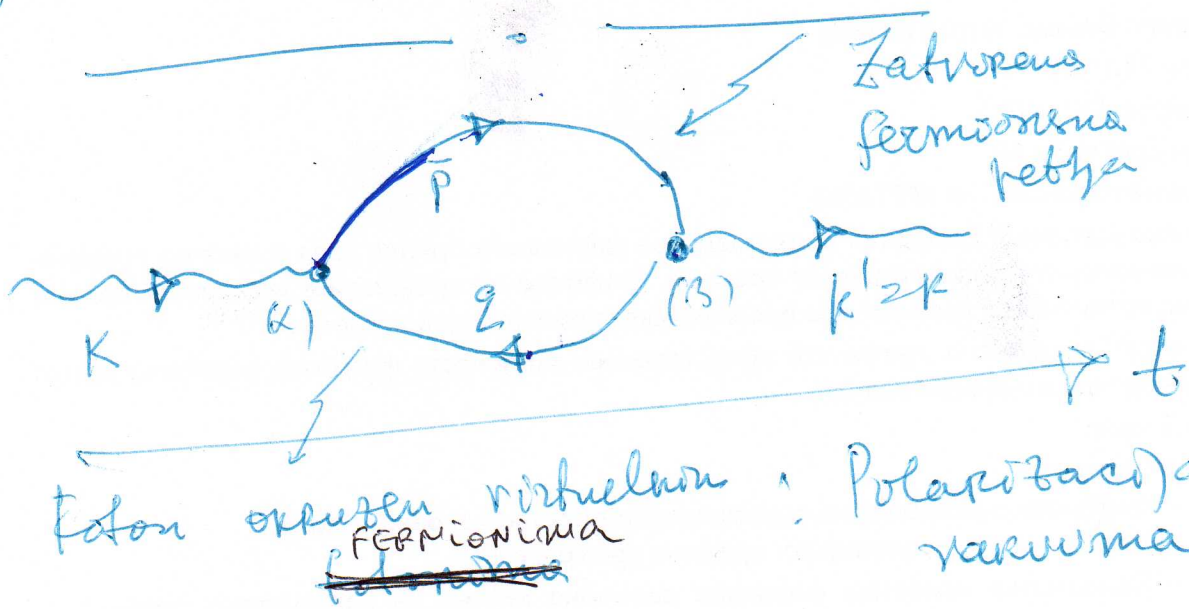 Zatvorena
fermionska
petlja
p
K
(α)
q
(β)
k'=k
t
Foton okružen virtuelnim : Polarizacija
FERMIONIMA vakuuma